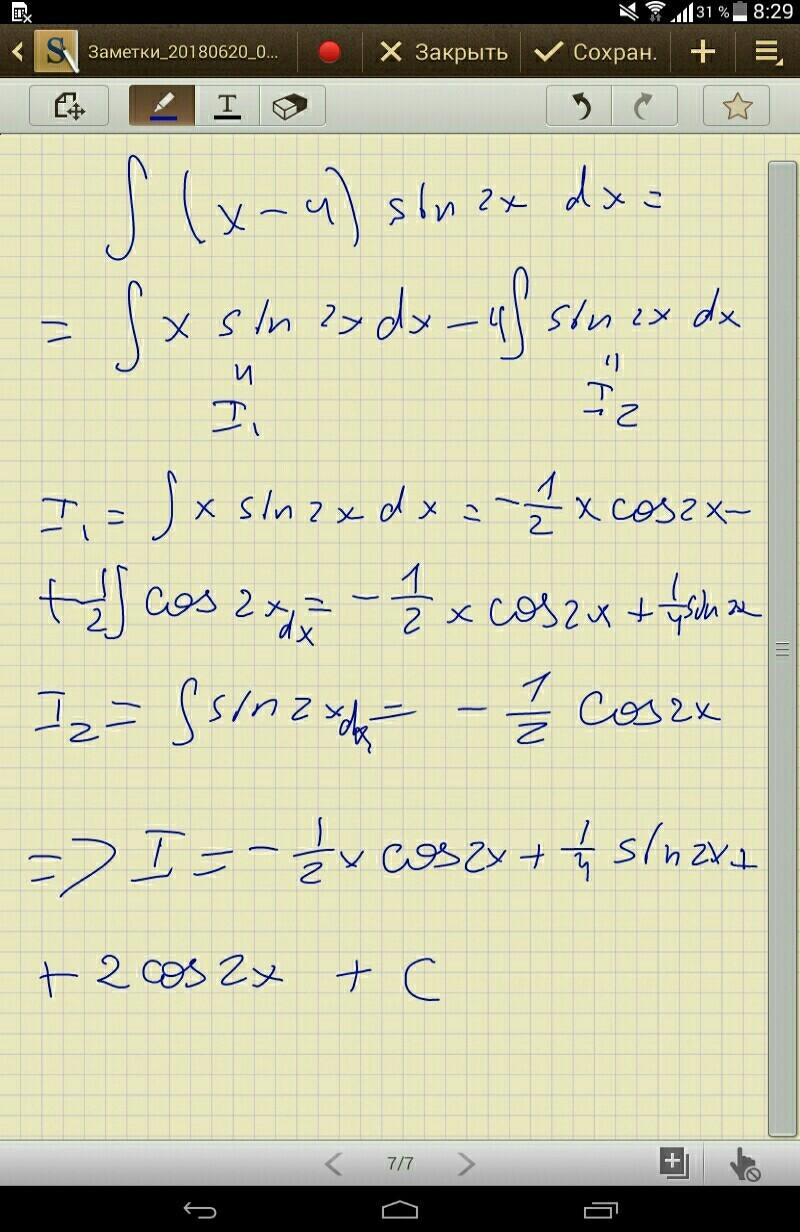 31 % 8:29
Заметки_20180620_0... Закрыть Сохран.
T
∫ (x - 4) sin 2x dx =
= ∫ x sin 2x dx - 4∫ sin 2x dx
" "
I₁ I₂
I₁ = ∫ x sin 2x dx = -1/2 x cos2x -
+ 1/2 ∫ cos 2x dx = -1/2 x cos2x + 1/4 sin 2x
I₂ = ∫ sin 2x dx = - 1/2 cos2x
=> I = - 1/2 x cos2x + 1/4 sin 2x +
+ 2 cos 2x + C
7/7